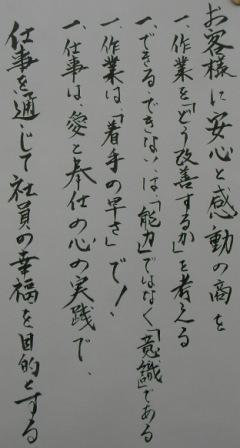 お客様に安心と感動の商を
一、作業を「どう改善するか」を考える
一、できる・できない、は「能力」ではなく「意識」である
一、作業は「着手の早さ」で!
一、仕事は、愛と奉仕の心の実践で、
仕事を通じて社員の幸福を目的とする